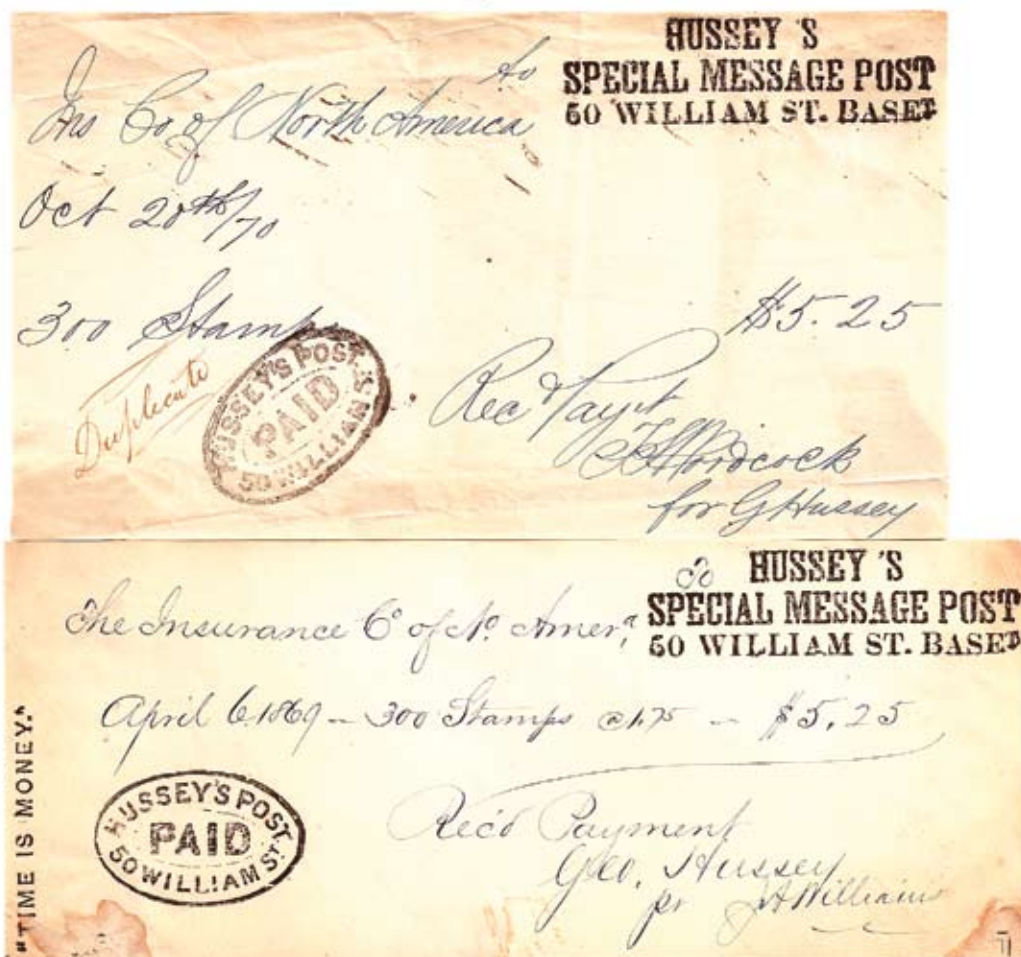 HUSSEY'S
SPECIAL MESSAGE POST
50 WILLIAM ST. BASET
to
Ins Co of North America
Oct 20th/70
300 Stamps $5.25
Duplicate
HUSSEY'S POST
PAID
50 WILLIAM ST.
Rec'd Paymt
for G Hussey
To HUSSEY'S
SPECIAL MESSAGE POST
50 WILLIAM ST. BASET
The Insurance Co of No. Amera
April 6. 1869 – 300 Stamps @ 1.75 – $5.25
"TIME IS MONEY."
HUSSEY'S POST
PAID
50 WILLIAM ST.
Rec'd Payment
Geo. Hussey
pr J A Williams